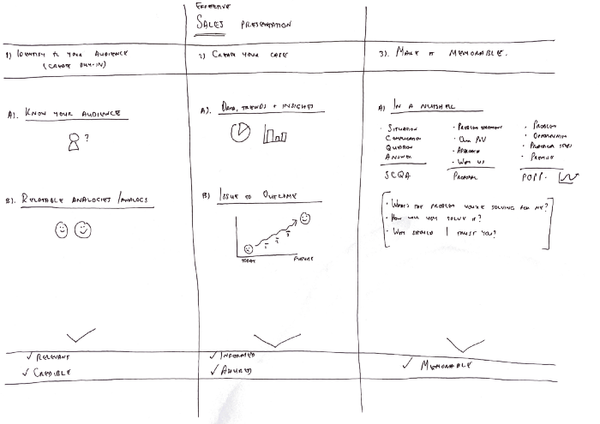 EFFECTIVE
SALES PRESENTATION
1) IDENTIFY TO YOUR AUDIENCE
(CREATE BUY-IN)
2) CREATE YOUR CASE
3). MAKE IT MEMORABLE.
A). KNOW YOUR AUDIENCE
?
B). RELATABLE ANALOGIES / ANALOGS
A). DATA, TRENDS + INSIGHTS
B) ISSUE TO OUTCOME
TODAY
FUTURE
A) IN A NUTSHELL
• SITUATION
COMPLICATION
QUESTION
ANSWER
SCQA
• PROBLEM STATEMENT
• OUR POV
• APPROACH
• WHY US
• PROBLEM
•
• PROBLEM
•
• WHAT'S THE PROBLEM YOU'RE SOLVING FOR ME?
• HOW WILL YOU SOLVE IT?
• WHY SHOULD I TRUST YOU?
✓ RELEVANT
✓ CREDIBLE
✓ INFORMED
✓
✓ MEMORABLE